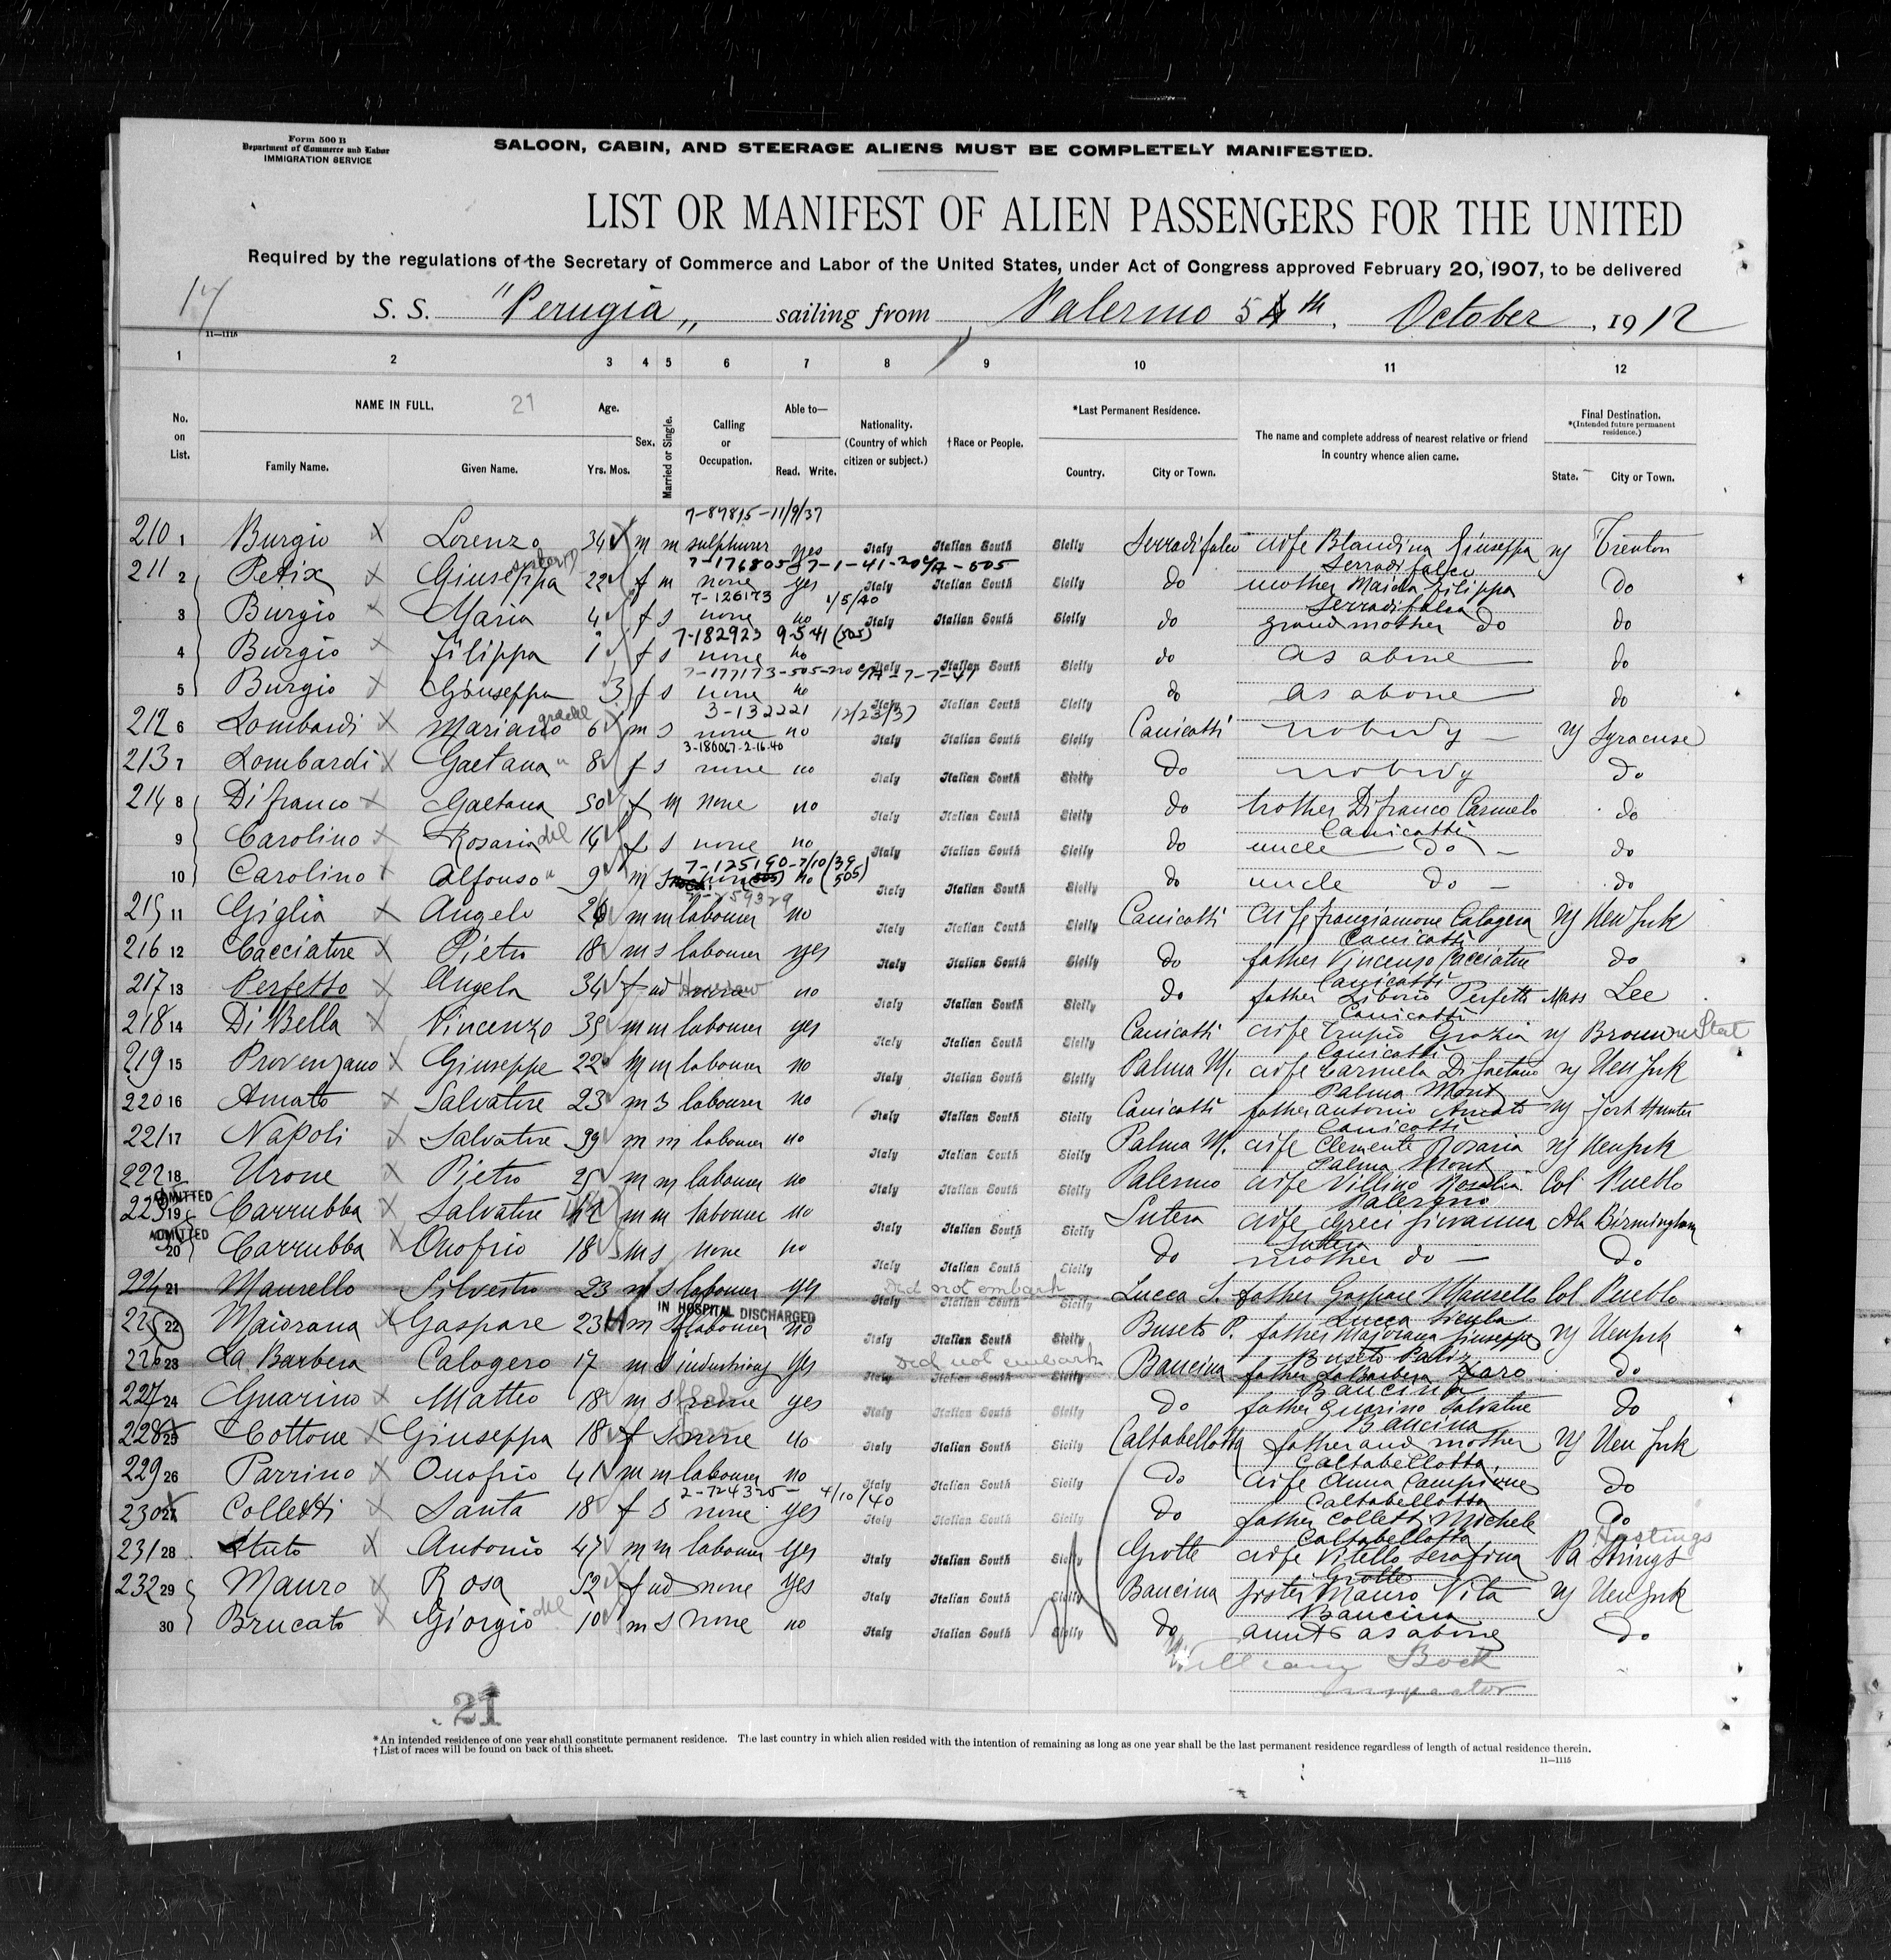 Form 500 B
Department of Commerce and Labor
IMMIGRATION SERVICE
SALOON, CABIN, AND STEERAGE ALIENS MUST BE COMPLETELY MANIFESTED.
LIST OR MANIFEST OF ALIEN PASSENGERS FOR THE UNITED
Required by the regulations of the Secretary of Commerce and Labor of the United States, under Act of Congress approved February 20, 1907, to be delivered
17 S. S. "Perugia„ sailing from Palermo 5th. October, 1912
11—1115
1 2 3 4 5 6 7 8 9 10 11 12
No. on List. NAME IN FULL. 21 Age. Sex. Married or Single. Calling or Occupation. Able to— Nationality. (Country of which citizen or subject.) †Race or People. *Last Permanent Residence. The name and complete address of nearest relative or friend in country whence alien came. Final Destination. *(Intended future permanent residence.)
Family Name. Given Name. Yrs. Mos. Read. Write. Country. City or Town. State. City or Town.
7-87815-11/9/37
210 1 Burgio X Lorenzo 34 m m sulphurer yes Italy Italian South Sicily Serradifalco wife Blandina Giuseppa ny Trenton
Serradifalco
211 2 Petix X Giuseppa 22 f m none yes Italy Italian South Sicily do mother Maida Filippa do
Serradifalco
7-126173 1/5/40
3 Burgio X Maria 4 f s none no Italy Italian South Sicily do grand mother do do
7-182923 9-5-41 (505)
4 Burgio X Filippa 1 f s none no Italy Italian South Sicily do as above do
5 Burgio X Giuseppa 3 f s none no Italy Italian South Sicily do as above do
3-132221 12/23/37
212 6 Lombardi X Mariano 6 m s none no Italy Italian South Sicily Canicatti nobody ny Syracuse
3-180067-2-16-40
213 7 Lombardi X Gaetana 8 f s none no Italy Italian South Sicily do nobody do
214 8 Difranco X Gaetana 50 f m none no Italy Italian South Sicily do brother Difranco Carmelo do
Canicatti
9 Carolino X Rosaria 14 f s none no Italy Italian South Sicily do uncle do do
7-125190-7/10/39 (505)
10 Carolino X Alfonso 9 m s no Italy Italian South Sicily do uncle do do
215 11 Giglia X Angelo 26 m m labourer no Italy Italian South Sicily Canicatti wife frangiamone Calogera ny New York
Canicatti
216 12 Cacciatore X Pietro 18 m s labourer yes Italy Italian South Sicily do father Vincenzo Cacciatore do
Canicatti
217 13 Perfetto X Angela 34 f wd no Italy Italian South Sicily do father Liborio Perfetto Mass Lee
Canicatti
218 14 Di Bella X Vincenzo 35 m m labourer yes Italy Italian South Sicily Canicatti wife Trupio Grazia ny
Canicatti
219 15 Provenzano X Giuseppe 22 m m labourer no Italy Italian South Sicily Palma M. wife Carmela Di Gaetano ny New York
Palma Mont
220 16 Amato X Salvatore 23 m s labourer no Italy Italian South Sicily Canicatti father antonio Amato ny Fort Hunter
Canicatti
221 17 Napoli X Salvatore 39 m m labourer no Italy Italian South Sicily Palma M. wife Clemente Rosaria ny New York
Palma Mont
222 18 Urone X Pietro 25 m m labourer no Italy Italian South Sicily Palermo wife Villino Rosalia Col Pueblo
Palermo
ADMITTED
223 19 Carrubba X Salvatore m m labourer no Italy Italian South Sicily Sutera wife Greci Giovanna Ala Birmingham
Sutera
ADMITTED
20 Carrubba X Onofrio 18 m s none no Italy Italian South Sicily do mother do do
224 21 Mansello Silvestro 23 m s labourer yes Did not embark Italy Italian South Sicily Lucca S. father Gaspare Mansello Col. Pueblo
Lucca Sicula
IN HOSPITAL DISCHARGED
225 22 Maiorana X Gaspare 23 m s labourer no Italy Italian South Sicily Buseto P. father Majorana Giuseppe ny New York
Buseto Paliz
226 23 La Barbera Calogero 17 m s yes Did not embark Italy Italian South Sicily Baucina father LaBarbera do
Baucina
227 24 Guarino X Matteo 18 m s none yes Italy Italian South Sicily do father Guarino Salvatore do
Baucina
228 25 Cottone X Giuseppa 18 f s none no Italy Italian South Sicily Caltabellotta father and mother ny New York
Caltabellotta
229 26 Parrino X Onofrio 41 m m labourer no Italy Italian South Sicily do wife Anna Campione do
Caltabellotta
2-724325- 4/10/40
230 27 Colletti X Santa 18 f s none yes Italy Italian South Sicily do father Colletti Michele do
Caltabellotta
231 28 Stuto X Antonio 47 m m labourer yes Italy Italian South Sicily Grotte wife Vitello Serafina Pa Hastings
Grotte
232 29 Mauro X Rosa 52 f wd none yes Italy Italian South Sicily Baucina sister Mauro Vita ny New York
Baucina
30 Brucato X Giorgio 10 m s none no Italy Italian South Sicily do aunt as above do
William Bock
Inspector
21
*An intended residence of one year shall constitute permanent residence. The last country in which alien resided with the intention of remaining as long as one year shall be the last permanent residence regardless of length of actual residence therein.
†List of races will be found on back of this sheet.
11—1115